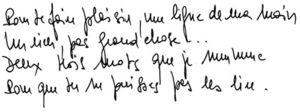 Pour te faire plaisir, une ligne de ma main
Un rien, pas grand chose...
Deux trois mots que je murmure
Pour que tu ne puisses pas les lire.